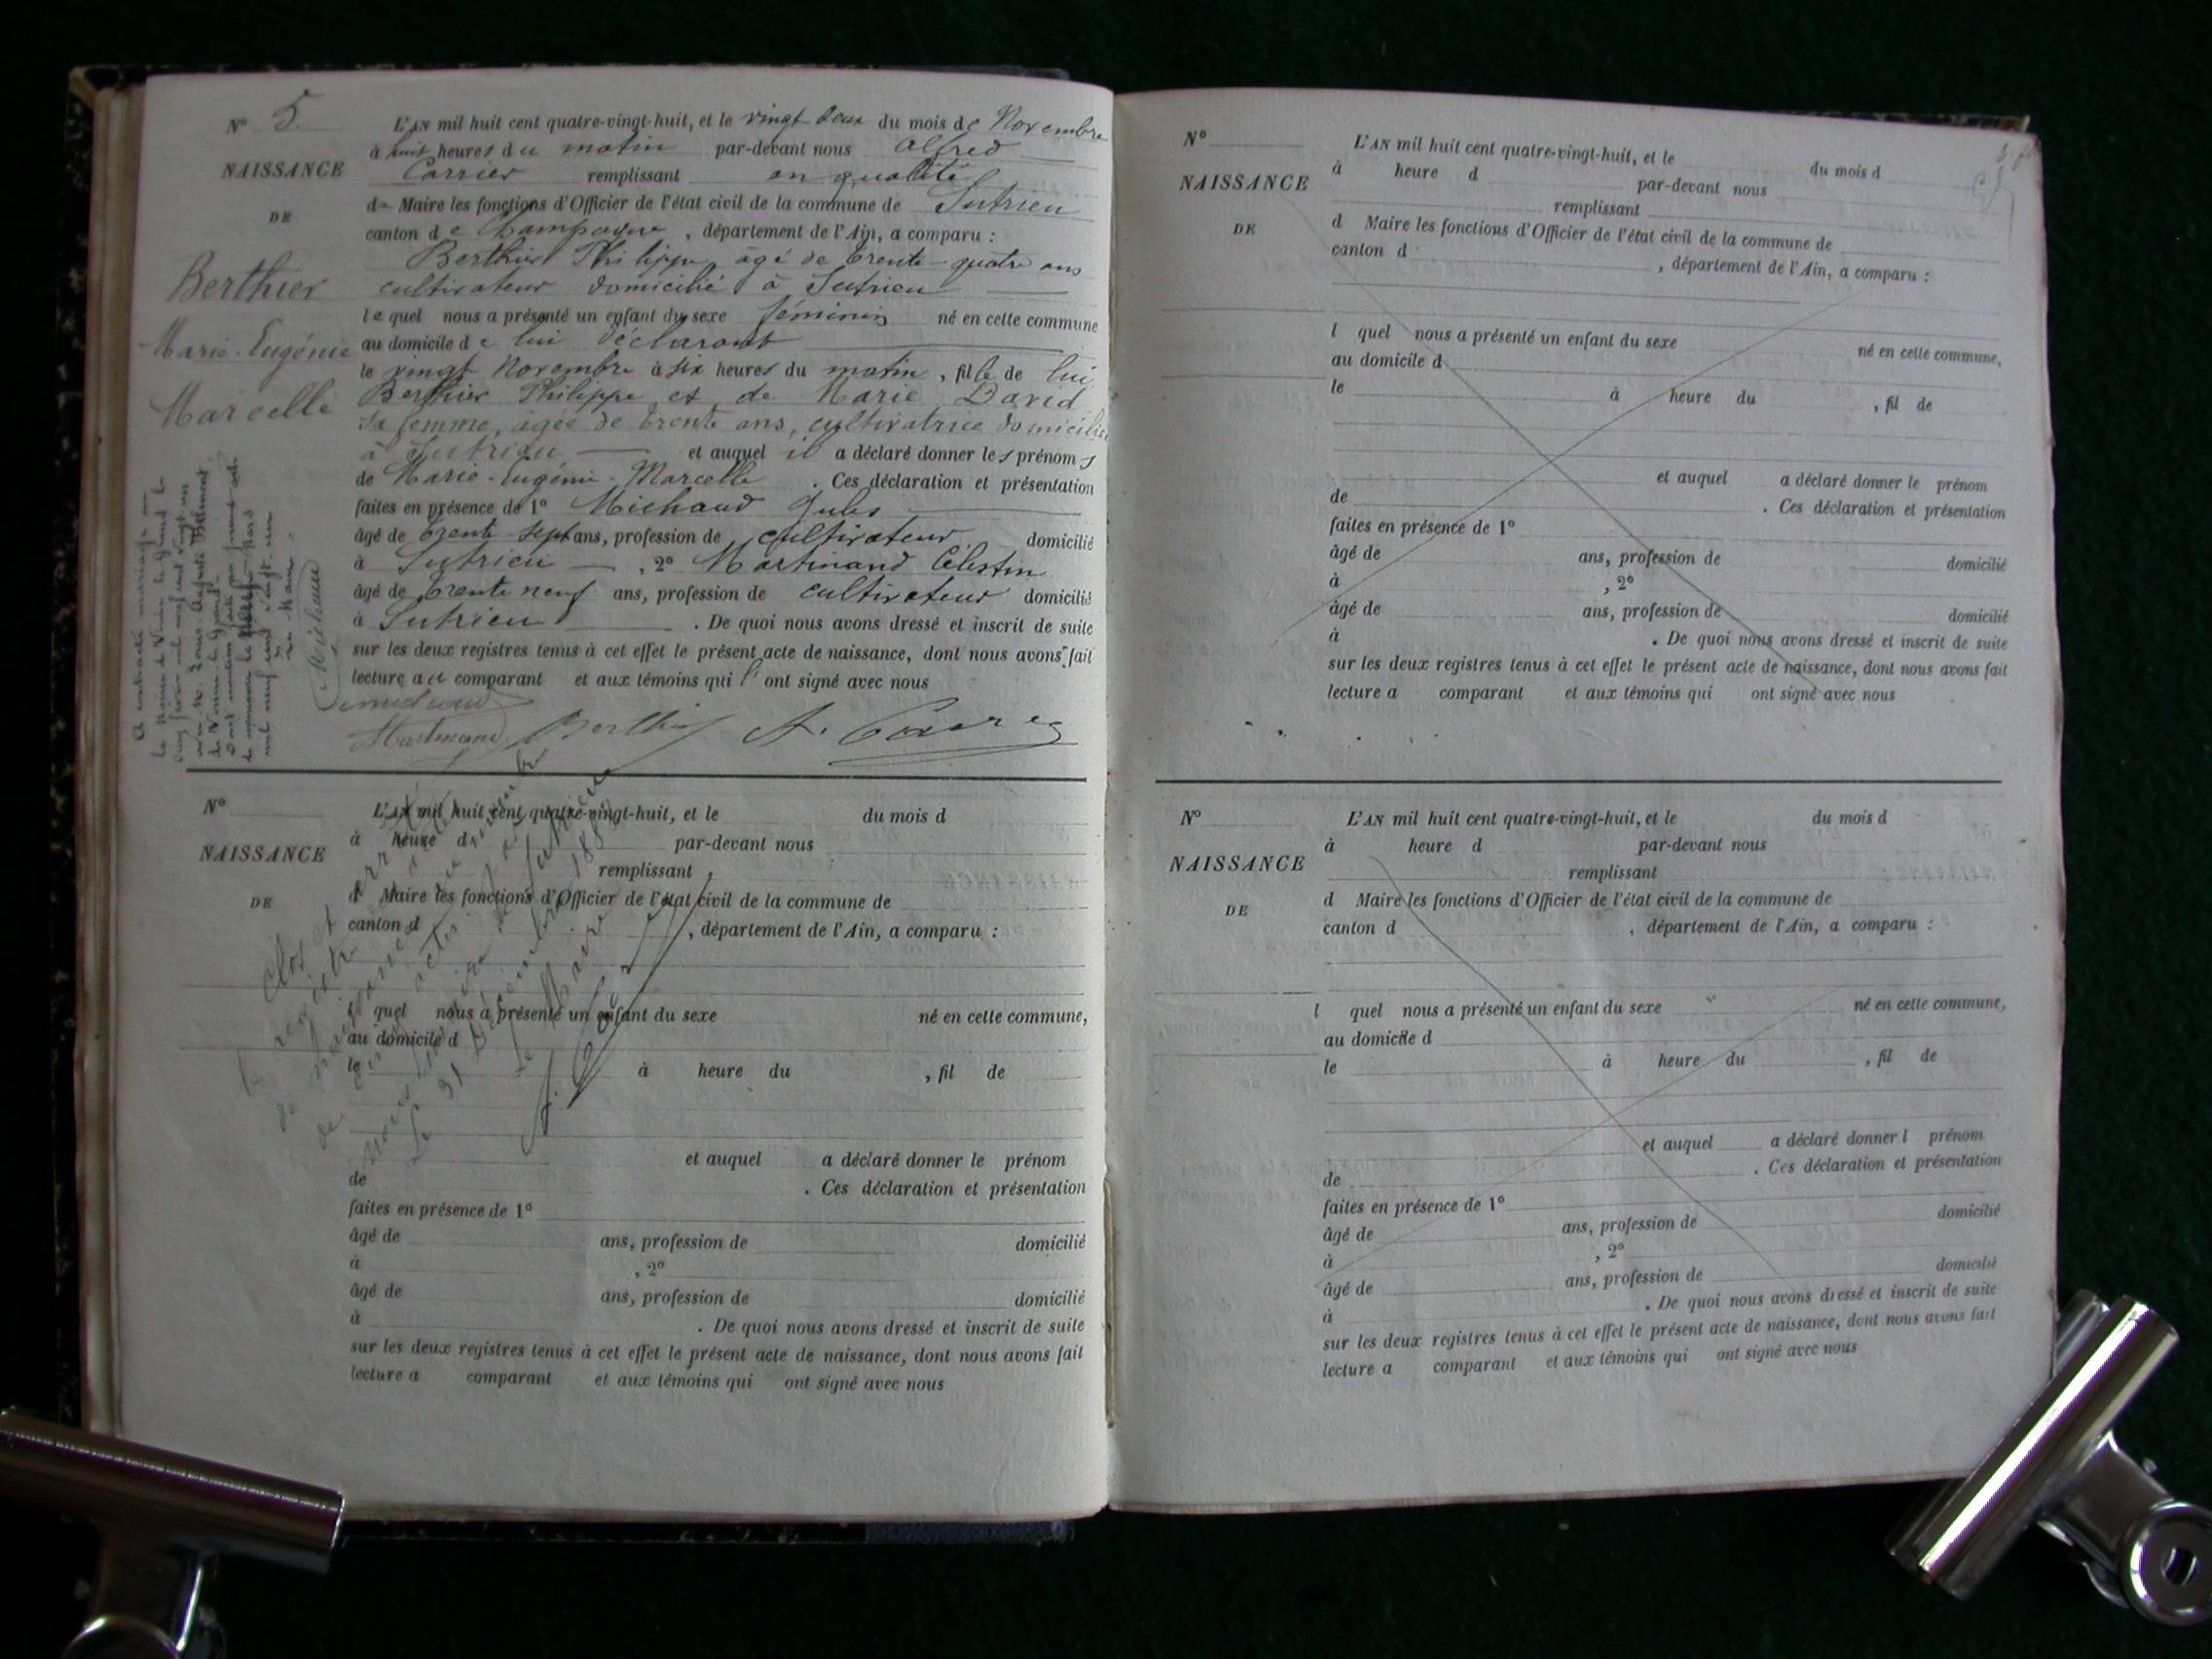 Nº 5.
NAISSANCE
DE
Berthier
Marie-Eugénie
Marcelle
L'AN mil huit cent quatre-vingt-huit, et le vingt deux du mois de Novembre
à huit heures du matin par-devant nous Alfred
Carrier remplissant en qualité
de Maire les fonctions d'Officier de l'état civil de la commune de Sutrieu
canton de Champagne, département de l'Ain, a comparu :
Berthier Philippe, âgé de trente-quatre ans
cultivateur domicilié à Sutrieu
lequel nous a présenté un enfant du sexe féminin né en cette commune
au domicile de lui déclarant
le vingt Novembre à six heures du matin, fille de lui
Berthier Philippe et de Marie David
sa femme, âgée de trente ans, cultivatrice domiciliée
à Sutrieu et auquel il a déclaré donner les prénoms
de Marie-Eugénie-Marcelle. Ces déclaration et présentation
faites en présence de 1º Michaud Jules
âgé de trente-sept ans, profession de cultivateur domicilié
à Sutrieu, 2º Martinand Célestin
âgé de trente neuf ans, profession de cultivateur domicilié
à Sutrieu. De quoi nous avons dressé et inscrit de suite
sur les deux registres tenus à cet effet le présent acte de naissance, dont nous avons fait
lecture au comparant et aux témoins qui l' ont signé avec nous
Michaud
Martinand Berthier A. Carrier
A contracté mariage à
la Mairie de
mil neuf cent vingt-un
avec M. Louis
le Maire
Michaud
Nº
NAISSANCE
DE
L'AN mil huit cent quatre-vingt-huit, et le du mois d
à heure d par-devant nous
remplissant
d Maire les fonctions d'Officier de l'état civil de la commune de
canton d , département de l'Ain, a comparu :
l quel nous a présenté un enfant du sexe né en cette commune,
au domicile d
le à heure du , fil de
et auquel a déclaré donner le prénom
de . Ces déclaration et présentation
faites en présence de 1º
âgé de ans, profession de domicilié
à , 2º
âgé de ans, profession de domicilié
à . De quoi nous avons dressé et inscrit de suite
sur les deux registres tenus à cet effet le présent acte de naissance, dont nous avons fait
lecture a comparant et aux témoins qui ont signé avec nous
Clos et arrêté
le registre
de naissances
de cinq actes
Sutrieu
le 31 Décembre 1888
Le Maire
Nº
NAISSANCE
DE
L'AN mil huit cent quatre-vingt-huit, et le du mois d
à heure d par-devant nous
remplissant
d Maire les fonctions d'Officier de l'état civil de la commune de
canton d , département de l'Ain, a comparu :
l quel nous a présenté un enfant du sexe né en cette commune,
au domicile d
le à heure du , fil de
et auquel a déclaré donner le prénom
de . Ces déclaration et présentation
faites en présence de 1º
âgé de ans, profession de domicilié
à , 2º
âgé de ans, profession de domicilié
à . De quoi nous avons dressé et inscrit de suite
sur les deux registres tenus à cet effet le présent acte de naissance, dont nous avons fait
lecture a comparant et aux témoins qui ont signé avec nous
Nº
NAISSANCE
DE
L'AN mil huit cent quatre-vingt-huit, et le du mois d
à heure d par-devant nous
remplissant
d Maire les fonctions d'Officier de l'état civil de la commune de
canton d , département de l'Ain, a comparu :
l quel nous a présenté un enfant du sexe né en cette commune,
au domicile d
le à heure du , fil de
et auquel a déclaré donner l prénom
de . Ces déclaration et présentation
faites en présence de 1º
âgé de ans, profession de domicilié
à , 2º
âgé de ans, profession de domicilié
à . De quoi nous avons dressé et inscrit de suite
sur les deux registres tenus à cet effet le présent acte de naissance, dont nous avons fait
lecture a comparant et aux témoins qui ont signé avec nous